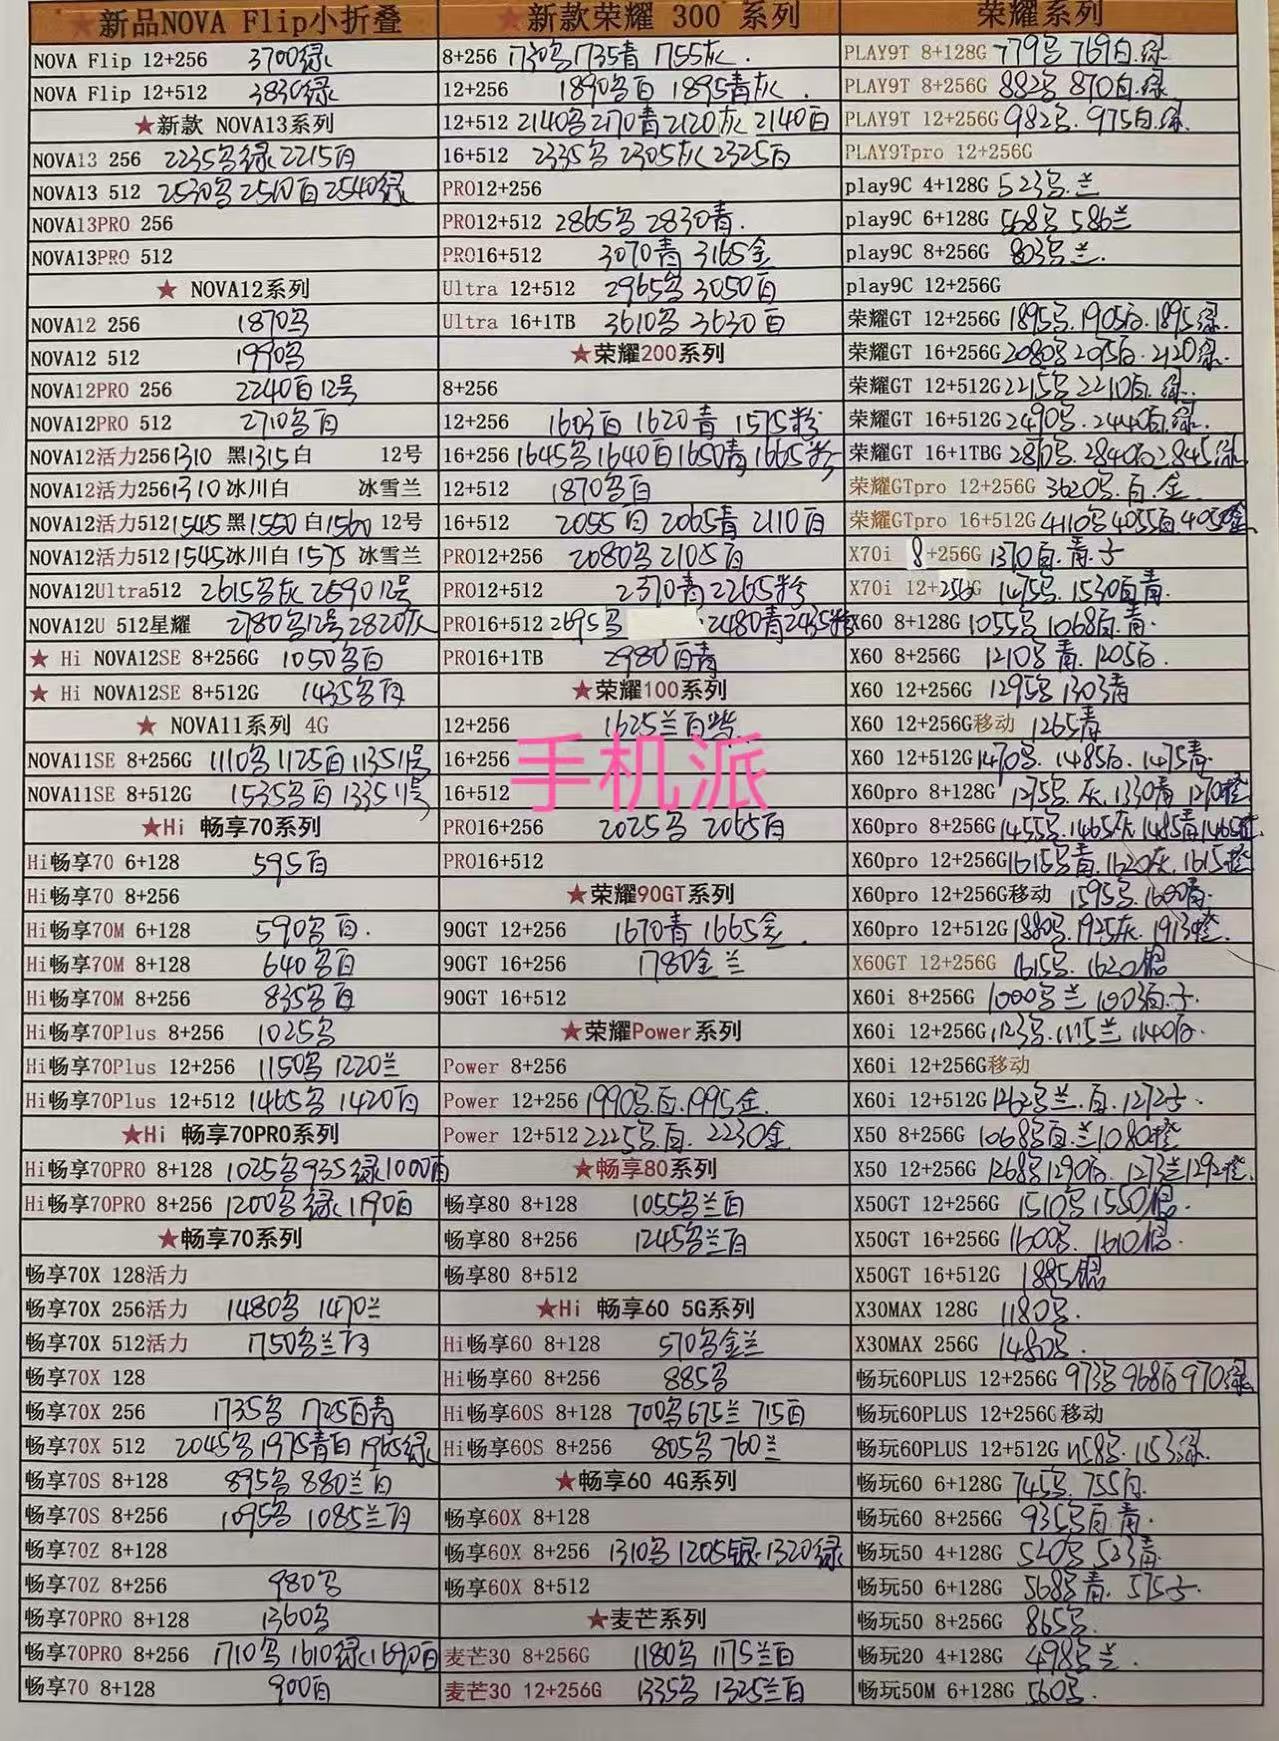 ★新品NOVA Flip小折叠
NOVA Flip 12+256 3700绿
NOVA Flip 12+512 3830绿
★新款 NOVA13系列
NOVA13 256 2235名绿 2215白
NOVA13 512 2530名 2510白 2540绿
NOVA13PRO 256
NOVA13PRO 512
★ NOVA12系列
NOVA12 256 1870名
NOVA12 512 1990名
NOVA12PRO 256 2240白12号
NOVA12PRO 512 2710名白
NOVA12活力256 1310 黑1315白 12号
NOVA12活力256 1310冰川白 冰雪兰
NOVA12活力512 1545黑1550白1560 12号
NOVA12活力512 1545冰川白1575 冰雪兰
NOVA12Ultra512 2615名灰 2690 12号
NOVA12U 512星耀 2780名12号2820灰
★ Hi NOVA12SE 8+256G 1050名白
★ Hi NOVA12SE 8+512G 1435名白
★ NOVA11系列 4G
NOVA11SE 8+256G 1110名 1125白 1135 11号
NOVA11SE 8+512G 1535名白 1335 11号
★Hi 畅享70系列
Hi畅享70 6+128 595白
Hi畅享70 8+256
Hi畅享70M 6+128 590名白.
Hi畅享70M 8+128 640名白
Hi畅享70M 8+256 835名白
Hi畅享70Plus 8+256 1025名
Hi畅享70Plus 12+256 1150名 1220兰
Hi畅享70Plus 12+512 1465名 1420白
★Hi 畅享70PRO系列
Hi畅享70PRO 8+128 1025名935绿1000白
Hi畅享70PRO 8+256 1200名绿 1190白
★畅享70系列
畅享70X 128活力
畅享70X 256活力 1480名 1470兰
畅享70X 512活力 1750名兰白
畅享70X 128
畅享70X 256 1735名 1725白青
畅享70X 512 2045名1975青白 1965绿
畅享70S 8+128 895名 880兰白
畅享70S 8+256 1095名 1085兰白
畅享70Z 8+128
畅享70Z 8+256 980名
畅享70PRO 8+128 1360名
畅享70PRO 8+256 1710名 1610绿 1690白
畅享70 8+128 900白
★新款荣耀 300 系列
8+256 1730名1735青 1755灰.
12+256 1890名白 1895青灰.
12+512 2140名2170青2120灰 2140白
16+512 2335名 2305灰 2325白
PRO12+256
PRO12+512 2865名 2830青.
PRO16+512 3070青 3165金
Ultra 12+512 2965名 3050白
Ultra 16+1TB 3610名 3630白
★荣耀200系列
8+256
12+256 1603白 1620青 1575粉
16+256 1645名1640白1650青1665粉
12+512 1870名白
16+512 2055白 2065青 2110白
PRO12+256 2080名 2105白
PRO12+512 2370青 2265粉
PRO16+512 2695名 2480青2435粉
PRO16+1TB 2980白青
★荣耀100系列
12+256 1625兰白紫
16+256
16+512
PRO16+256 2025名 2065白
PRO16+512
★荣耀90GT系列
90GT 12+256 1670青 1665金.
90GT 16+256 1780金兰
90GT 16+512
★荣耀Power系列
Power 8+256
Power 12+256 1990名.白.1995金.
Power 12+512 2225名白. 2230金
★畅享80系列
畅享80 8+128 1055名兰白
畅享80 8+256 1245名兰白
畅享80 8+512
★Hi 畅享60 5G系列
Hi畅享60 8+128 570名金兰
Hi畅享60 8+256 885名
Hi畅享60S 8+128 700名675兰 715白
Hi畅享60S 8+256 805名 760兰
★畅享60 4G系列
畅享60X 8+128
畅享60X 8+256 1310名 1205银 1320绿
畅享60X 8+512
★麦芒系列
麦芒30 8+256G 1180名 1175兰白
麦芒30 12+256G 1335名 1325兰白
荣耀系列
PLAY9T 8+128G 779名 769白.绿.
PLAY9T 8+256G 882名 870白.绿
PLAY9T 12+256G 982名. 975白.绿.
PLAY9Tpro 12+256G
play9C 4+128G 523名.兰
play9C 6+128G 568名 586兰
play9C 8+256G 803名兰.
play9C 12+256G
荣耀GT 12+256G 1895名.1905白.1895绿.
荣耀GT 16+256G 2080名 2095白. 2120绿.
荣耀GT 12+512G 2215名 2210白.绿.
荣耀GT 16+512G 2490名. 2440白.绿.
荣耀GT 16+1TBG 2840白 2845绿
荣耀GTpro 12+256G 3620名.白.金.
荣耀GTpro 16+512G 4110名4055白.金
X70i 8+256G 1370白.青.子
X70i 12+256G 1475名. 1530白青.
X60 8+128G 1055名 1068白.青.
X60 8+256G 1210名青. 1205白.
X60 12+256G 1295名 1303青
X60 12+256G移动 1265青
X60 12+512G 1470名. 1485白. 1475青.
X60pro 8+128G 1275名.灰.1330青 1270橙
X60pro 8+256G 1455名.1465灰 1485青1465橙.
X60pro 12+256G 1615名青.1620灰.1615橙
X60pro 12+256G移动 1595名. 1600青.
X60pro 12+512G 1880名.1925灰. 1913橙.
X60GT 12+256G 1615名. 1620银
X60i 8+256G 1000名兰 1003白.子.
X60i 12+256G 1123名.1115兰 1140白.
X60i 12+256G移动
X60i 12+512G 1262名兰.白.1272子.
X50 8+256G 1068名白.兰1080橙
X50 12+256G 1268名1290白. 1273兰1292橙.
X50GT 12+256G 1510名 1550银.
X50GT 16+256G 1600名. 1610银.
X50GT 16+512G 1885银
X30MAX 128G 1180名.
X30MAX 256G 1480名.
畅玩60PLUS 12+256G 973名 968白 970绿
畅玩60PLUS 12+256G移动
畅玩60PLUS 12+512G 1158名. 1153绿.
畅玩60 6+128G 745名. 755白.
畅玩60 8+256G 935名白.青.
畅玩50 4+128G 520名 523青
畅玩50 6+128G 568名青. 575子.
畅玩50 8+256G 865名.
畅玩20 4+128G 498名兰.
畅玩50M 6+128G 560名.
手机派